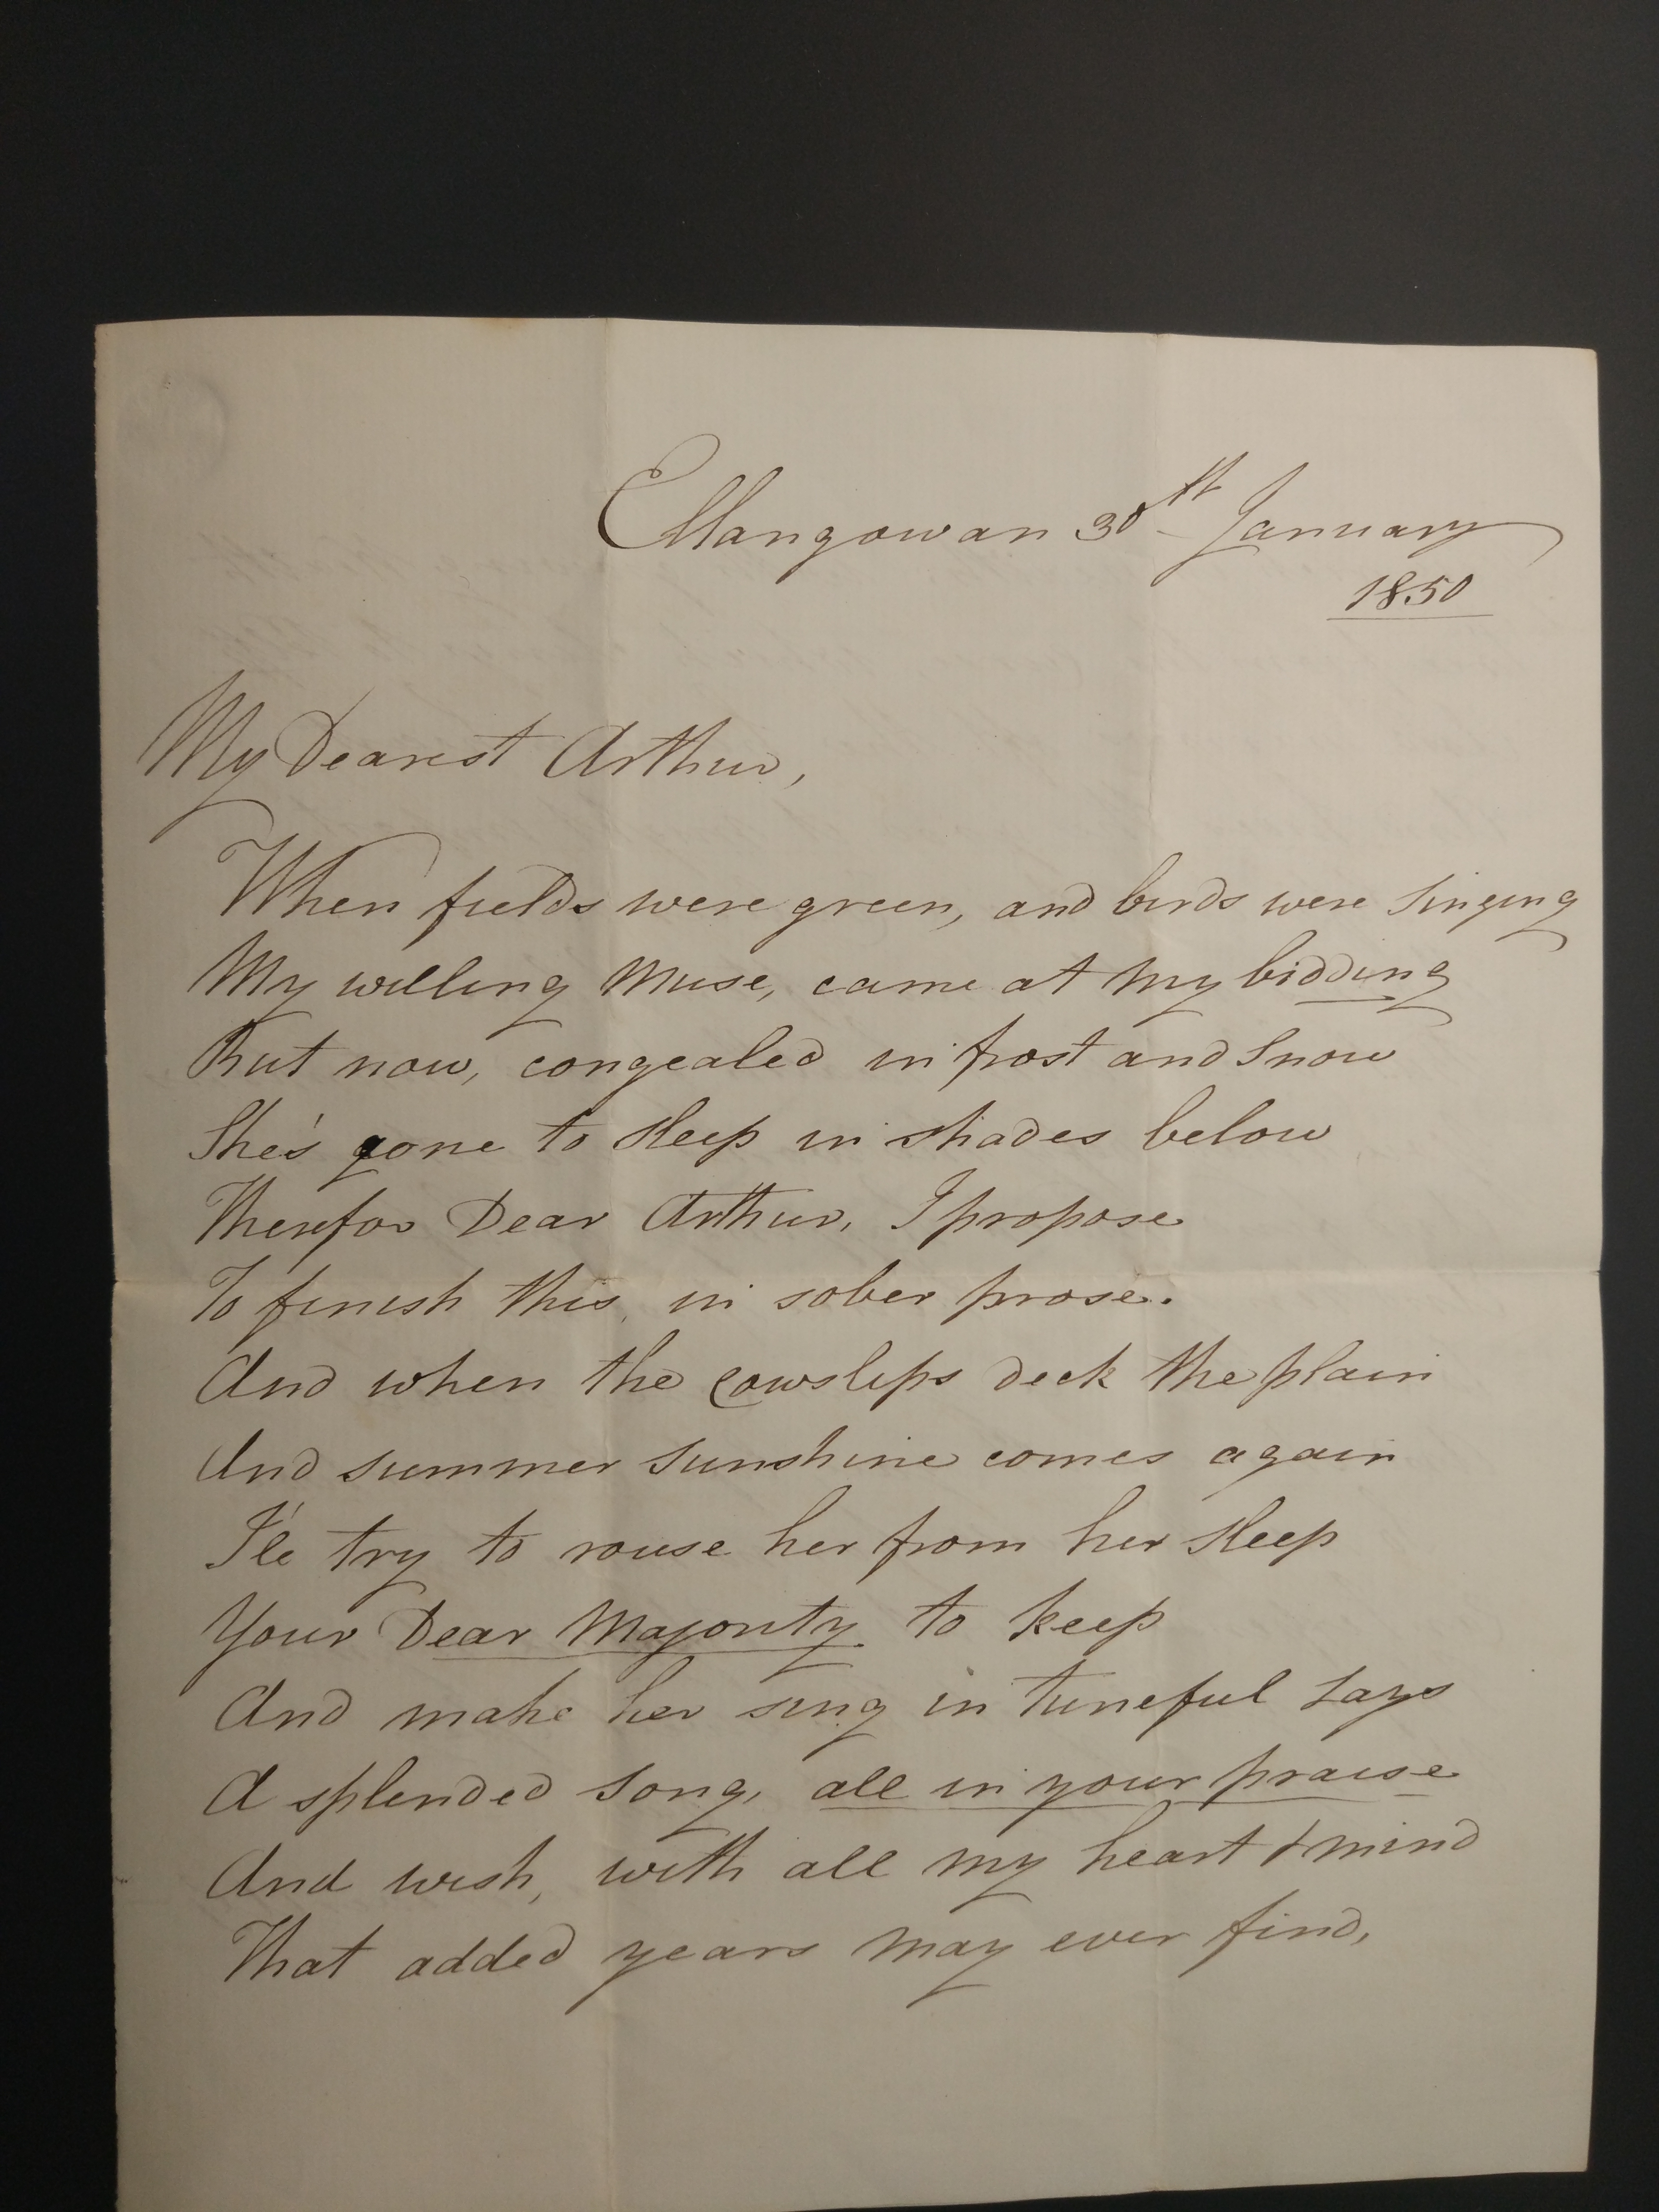 Ellangowan 30th January
1850
My Dearest Arthur,
When fields were green, and birds were singing
My willing Muse, came at my bidding
But now, congealed in frost and Snow
She's gone to Sleep in shades below
Therefor Dear Arthur, I propose
To finish this, in sober prose.
And when the Cowslips deck the plain
And summer Sunshine comes again
I'le try to rouse her from her Sleep
Your Dear Majority to keep
And make her sing in tuneful Lays
A splended Song, all in your praise
And wish, with all my heart & mind
That added years may ever find,